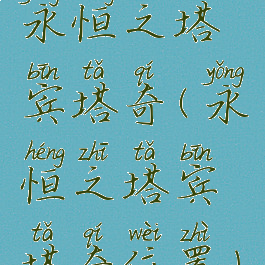 永恒之塔
bīn tǎ qí yǒng
宾塔奇(永
héng zhī tǎ bīn
恒之塔宾
tǎ qí wèi zhì
塔奇位置)